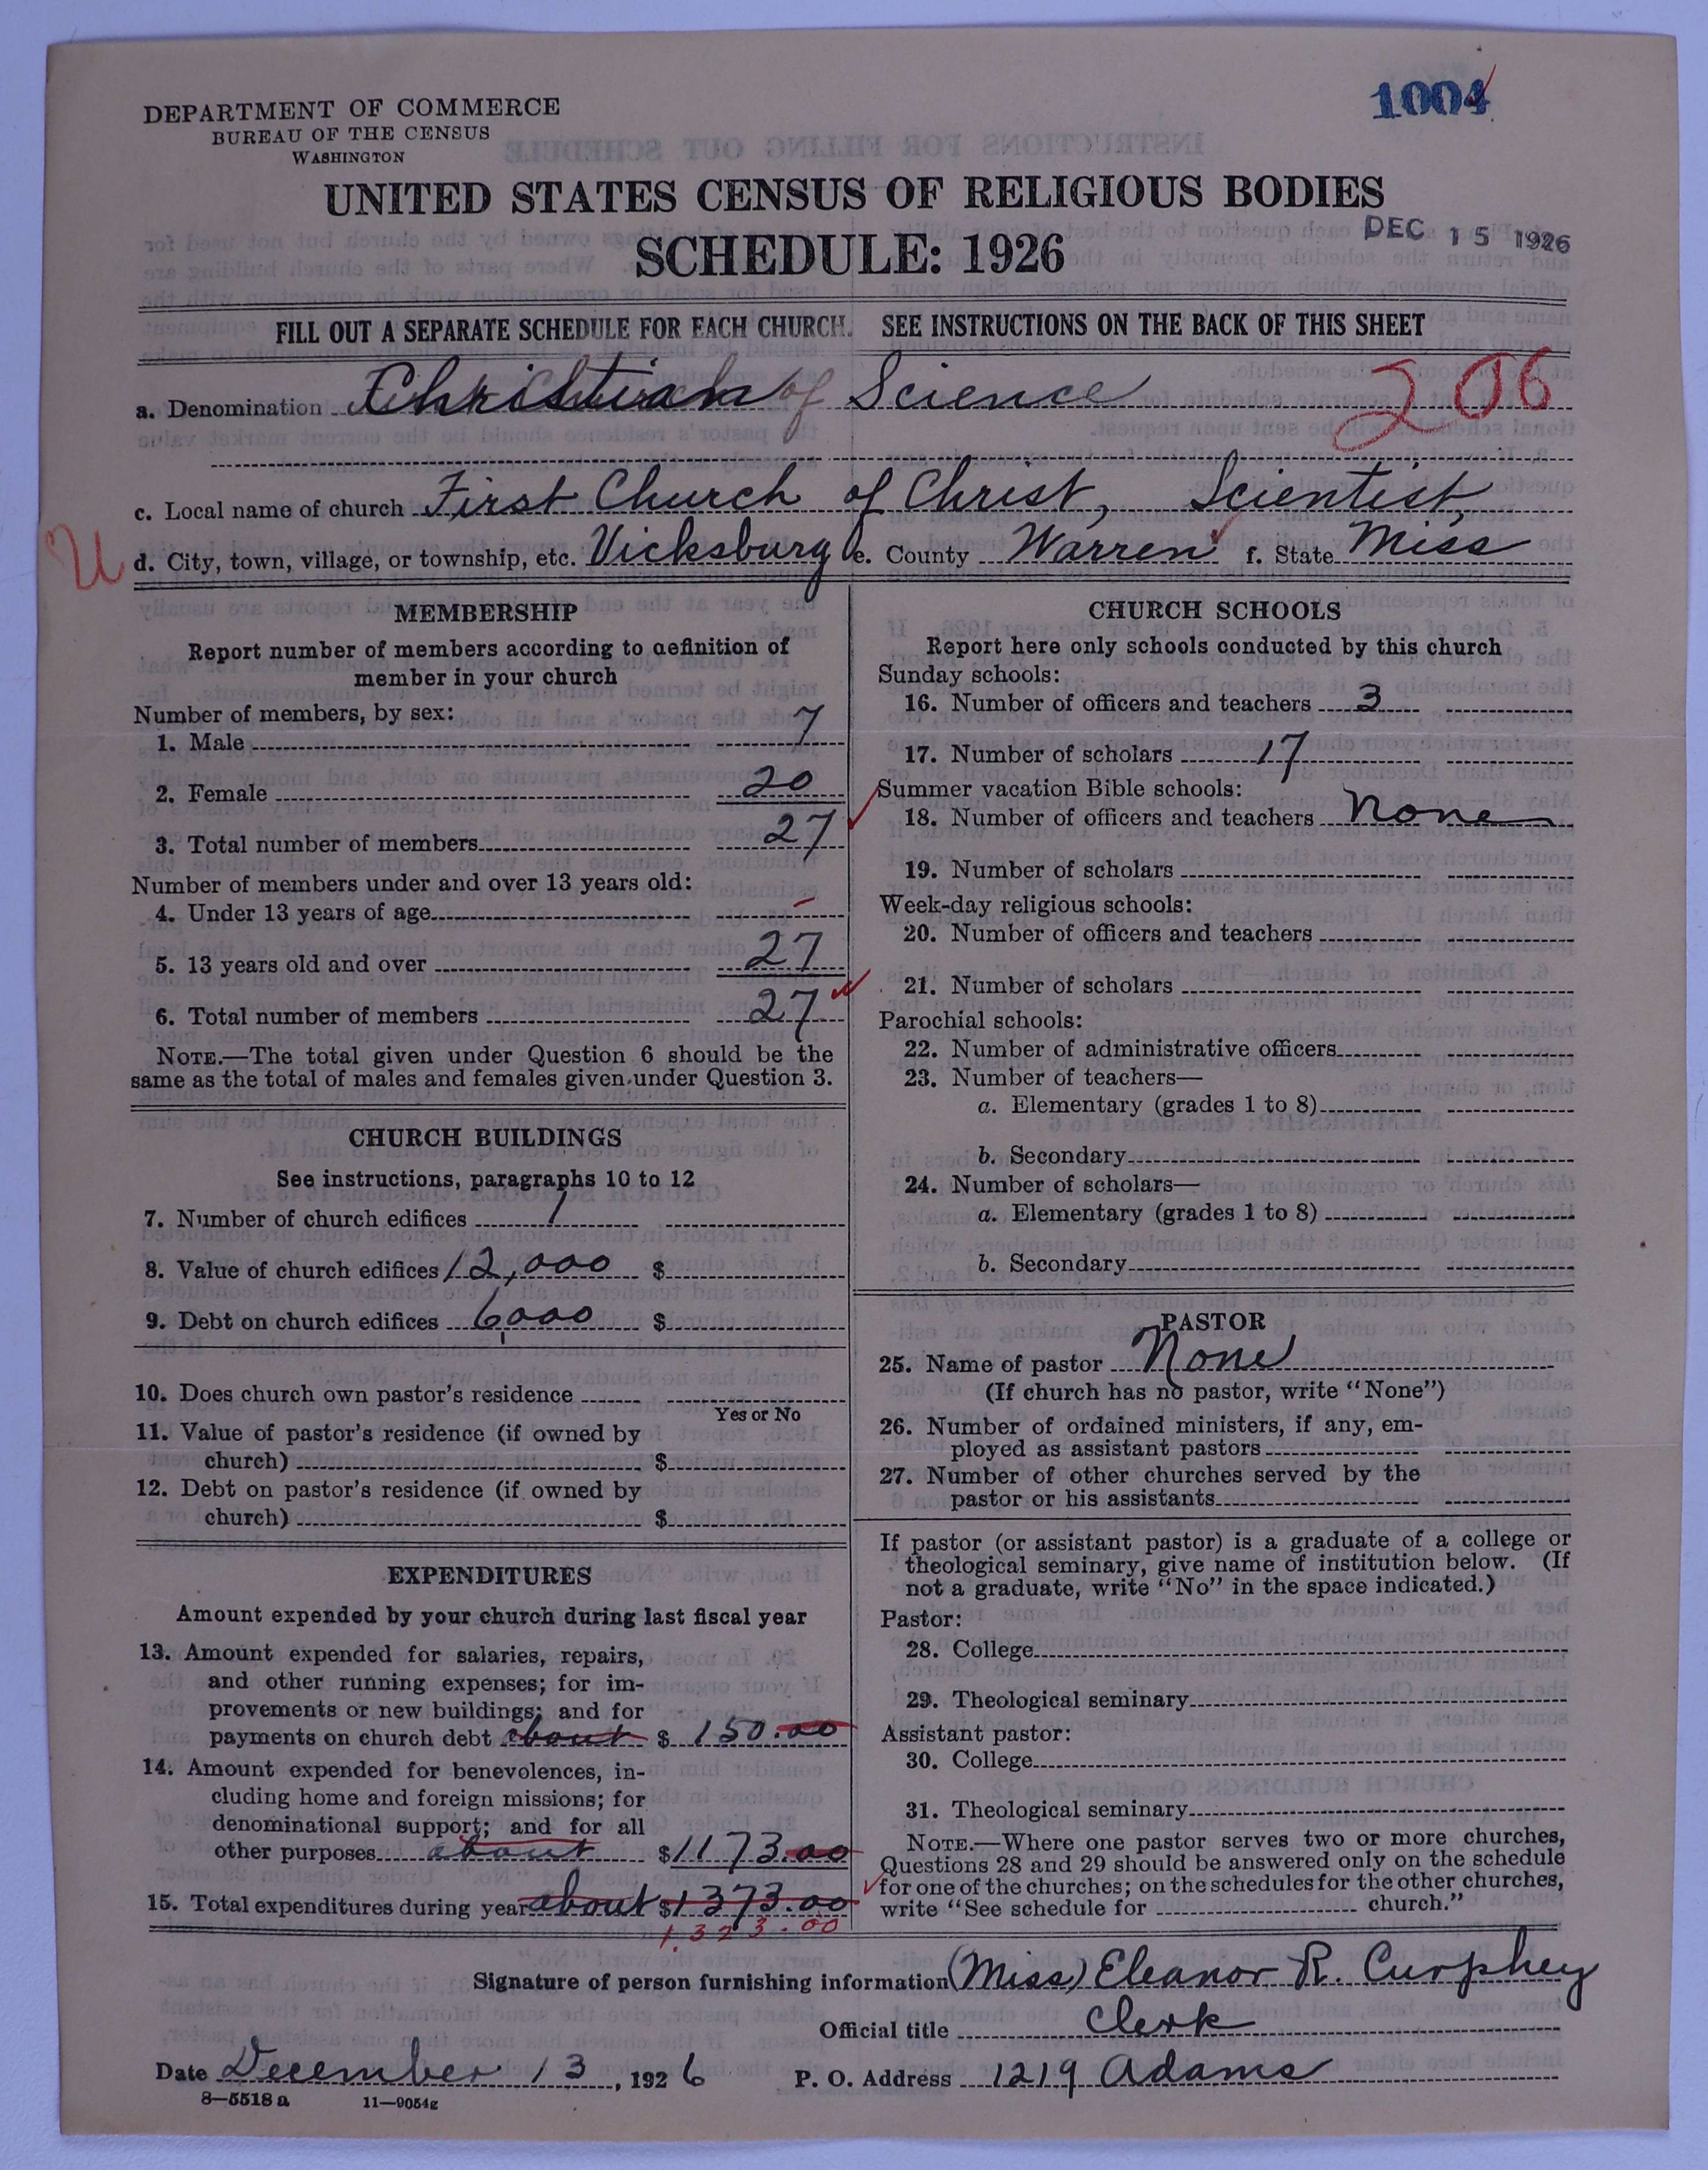 1004
DEPARTMENT OF COMMERCE
BUREAU OF THE CENSUS
WASHINGTON
UNITED STATES CENSUS OF RELIGIOUS BODIES
SCHEDULE: 1926
DEC 15 1926
FILL OUT A SEPARATE SCHEDULE FOR EACH CHURCH. SEE INSTRUCTIONS ON THE BACK OF THIS SHEET
a. Denomination Christian of Science
206
c. Local name of church First Church of Christ, Scientist,
U
d. City, town, village, or township, etc. Vicksburg e. County Warren f. State Miss
MEMBERSHIP
Report number of members according to definition of
member in your church
Number of members, by sex:
1. Male 7
2. Female 20
3. Total number of members 27
Number of members under and over 13 years old:
4. Under 13 years of age -
5. 13 years old and over 27
6. Total number of members 27
NOTE.—The total given under Question 6 should be the
same as the total of males and females given under Question 3.
CHURCH BUILDINGS
See instructions, paragraphs 10 to 12
7. Number of church edifices 1
8. Value of church edifices 12,000 $
9. Debt on church edifices 6,000 $
10. Does church own pastor's residence
Yes or No
11. Value of pastor's residence (if owned by
church) $
12. Debt on pastor's residence (if owned by
church) $
EXPENDITURES
Amount expended by your church during last fiscal year
13. Amount expended for salaries, repairs,
and other running expenses; for im-
provements or new buildings; and for
payments on church debt about $ 150.00
14. Amount expended for benevolences, in-
cluding home and foreign missions; for
denominational support; and for all
other purposes about $1173.00
15. Total expenditures during year about $1373.00
1,323.00
CHURCH SCHOOLS
Report here only schools conducted by this church
Sunday schools:
16. Number of officers and teachers 3
17. Number of scholars 17
Summer vacation Bible schools:
18. Number of officers and teachers None
19. Number of scholars
Week-day religious schools:
20. Number of officers and teachers
21. Number of scholars
Parochial schools:
22. Number of administrative officers
23. Number of teachers—
a. Elementary (grades 1 to 8)
b. Secondary
24. Number of scholars—
a. Elementary (grades 1 to 8)
b. Secondary
PASTOR
25. Name of pastor None
(If church has no pastor, write "None")
26. Number of ordained ministers, if any, em-
ployed as assistant pastors
27. Number of other churches served by the
pastor or his assistants
If pastor (or assistant pastor) is a graduate of a college or
theological seminary, give name of institution below. (If
not a graduate, write "No" in the space indicated.)
Pastor:
28. College
29. Theological seminary
Assistant pastor:
30. College
31. Theological seminary
NOTE.—Where one pastor serves two or more churches,
Questions 28 and 29 should be answered only on the schedule
for one of the churches; on the schedules for the other churches,
write "See schedule for church."
Signature of person furnishing information (Miss) Eleanor R. Curphey
Official title Clerk
Date December 13, 1926 P. O. Address 1219 Adams
8—5518 a 11—9054g